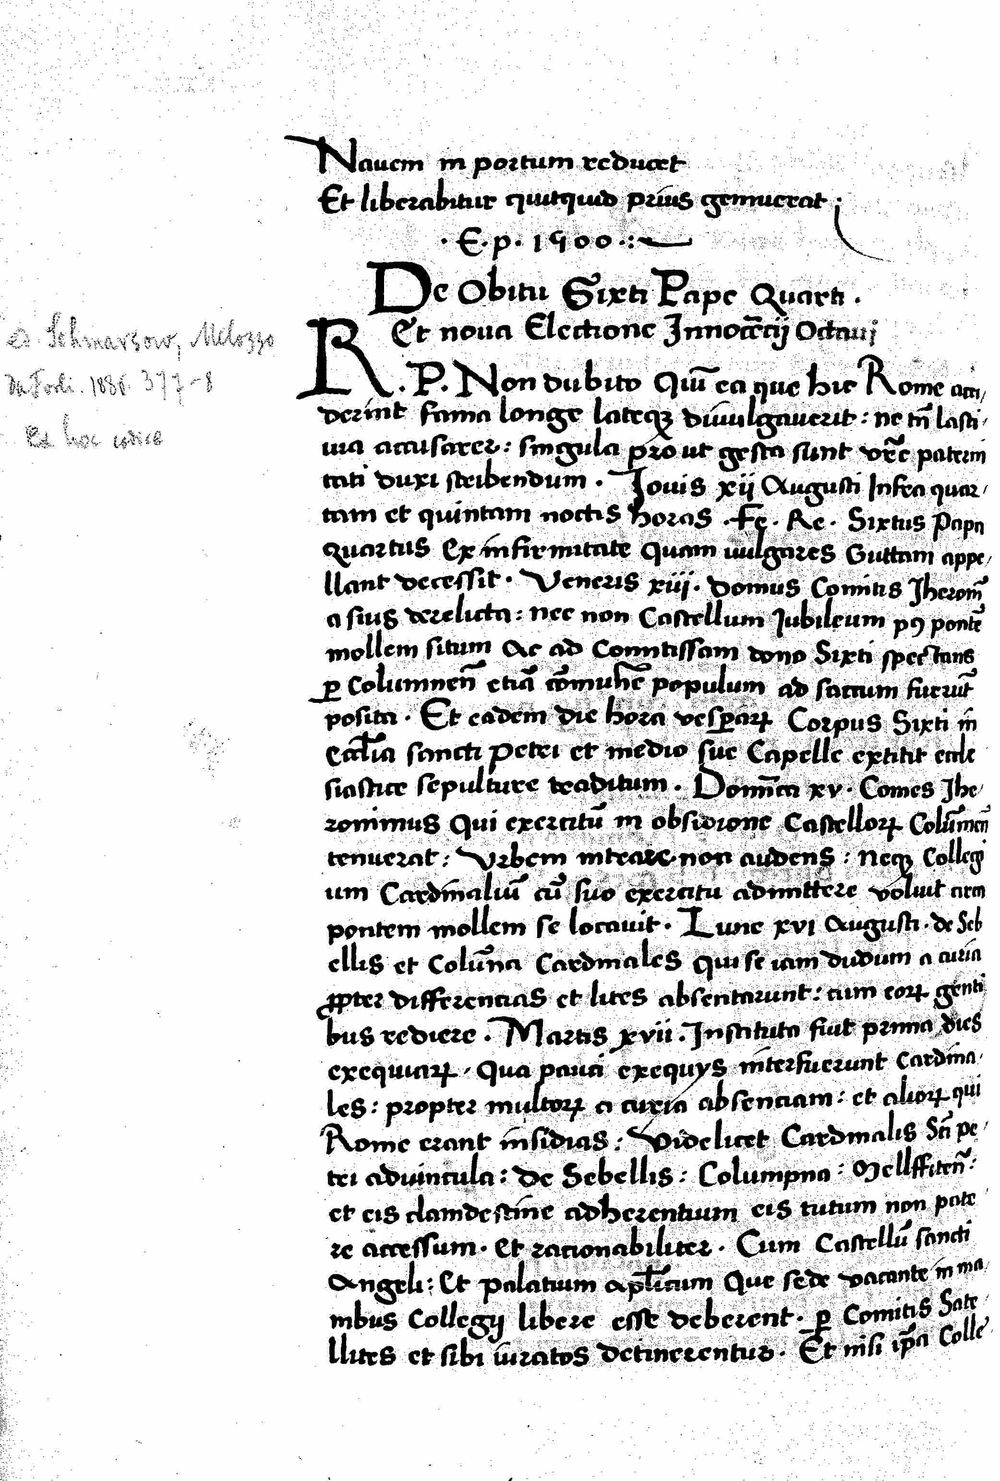 Nauem in portum reducet
Et liberabitur quitquid prius gemuerat
· E · p · 1500 ·
De Obitu Sixti Pape Quarti ·
Et noua Electione Innocẽcij Octaui
ed. Schmarsow, Melozzo
da Forlì. 1886. 377-8
Ex hoc codice
R. P. Non dubito Quĩ ea que hic Rome acci/
derint fama longe lateqꝫ diuulgauerit : ne tñ lasci/
uia accusarer : singula pro ut gesta sunt vrẽ paterni
tati duxi scribendum · Iouis xij Augusti Infra quar/
tam et quintam noctis horas · Fe · Re · Sixtus Papa
Quartus Ex infirmitate quam uulgares Guttam appe/
llant decessit · Veneris xiij · domus Comitis Jheroñ
a suis derelicta : nec non Castellum Iubileum pꝰ pontẽ
mollem situm Ac ad Comitissam dono Sixti spectans
ꝑ Columneñ etiã cõmunẽ populum ad saccum fuerũt
posita · Et eadem die hora vesꝑarꝝ Corpus Sixti in
eccl̃ia sancti Petri et medio sue Capelle extitit eccle
siastice sepulture traditum · Domĩca xv · Comes Jhe/
ronimus Qui exercitũ in obsidione Castellorꝝ Colũmeñ
tenuerat : Vrbem intrare non audens : Neqꝫ Collegi
um Cardinaliũ cũ suo exercitu admittere voluit citra
pontem mollem se locauit · Lune xvi Augusti · de Sab
ellis et Colũna Cardinales qui se iam dudum a curia
ꝓpter differencias et lites absentarunt : cum eorꝝ genti
bus rediere · Martis xvii · Instituta fuit prima dies
exequiarꝝ · Qua pauci exequijs interfuerunt Cardina/
les : propter multorꝝ a curia absenciam : et aliorꝝ qui
Rome erant insidias : Videlicet Cardinalis Scĩ pe/
tri aduincula : De Sabellis : Columpna : Mellfiteñ :
et eis clamdestine adherentium eis tutum non pate
re accessum · Et racionabiliter · Cum Castellũ sancti
Angeli : Et palatium apl̃icum Que sede vacante in ma/
nibus Collegij libere esse deberent · ꝑ Comitis Sate/
llites et sibi iuratos detinerentur · Et nisi ip̃a Colle/